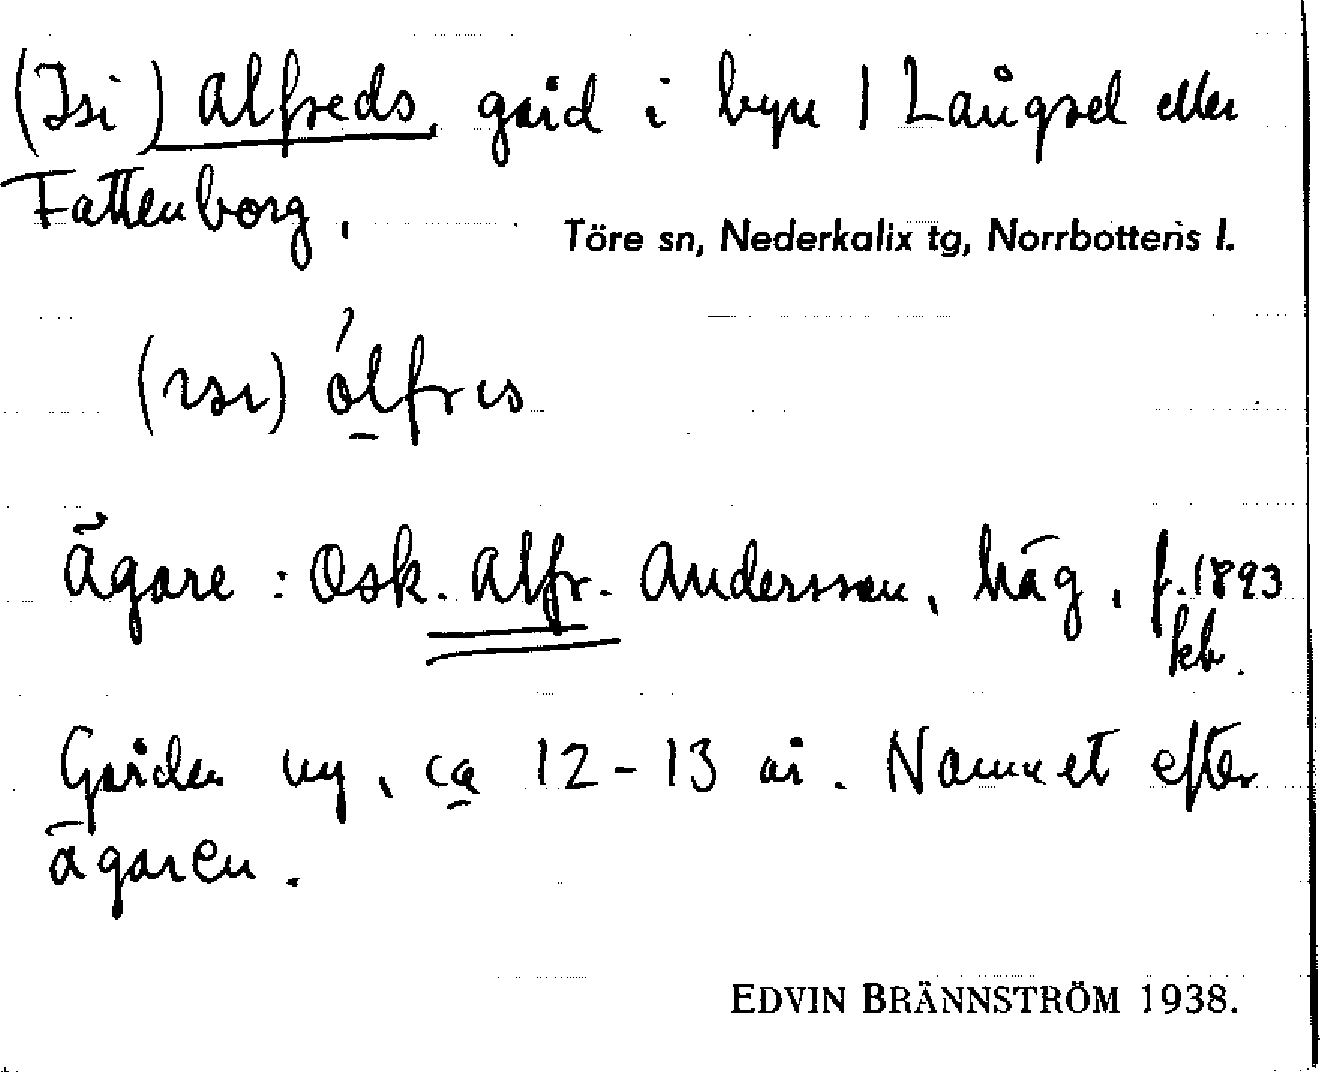 (Isi) Alfreds, gård i byn 1 Långsel eller
Fattenborg,
Töre sn, Nederkalix tg, Norrbottens l.
(ısı) ȧlfrıs
Ägare: Osk. Alfr. Andersson, häg, f. 1893
kb.
Gården ny, ca 12-13 år. Namnet efter
ägaren.
EDVIN BRÄNNSTRÖM 1938.